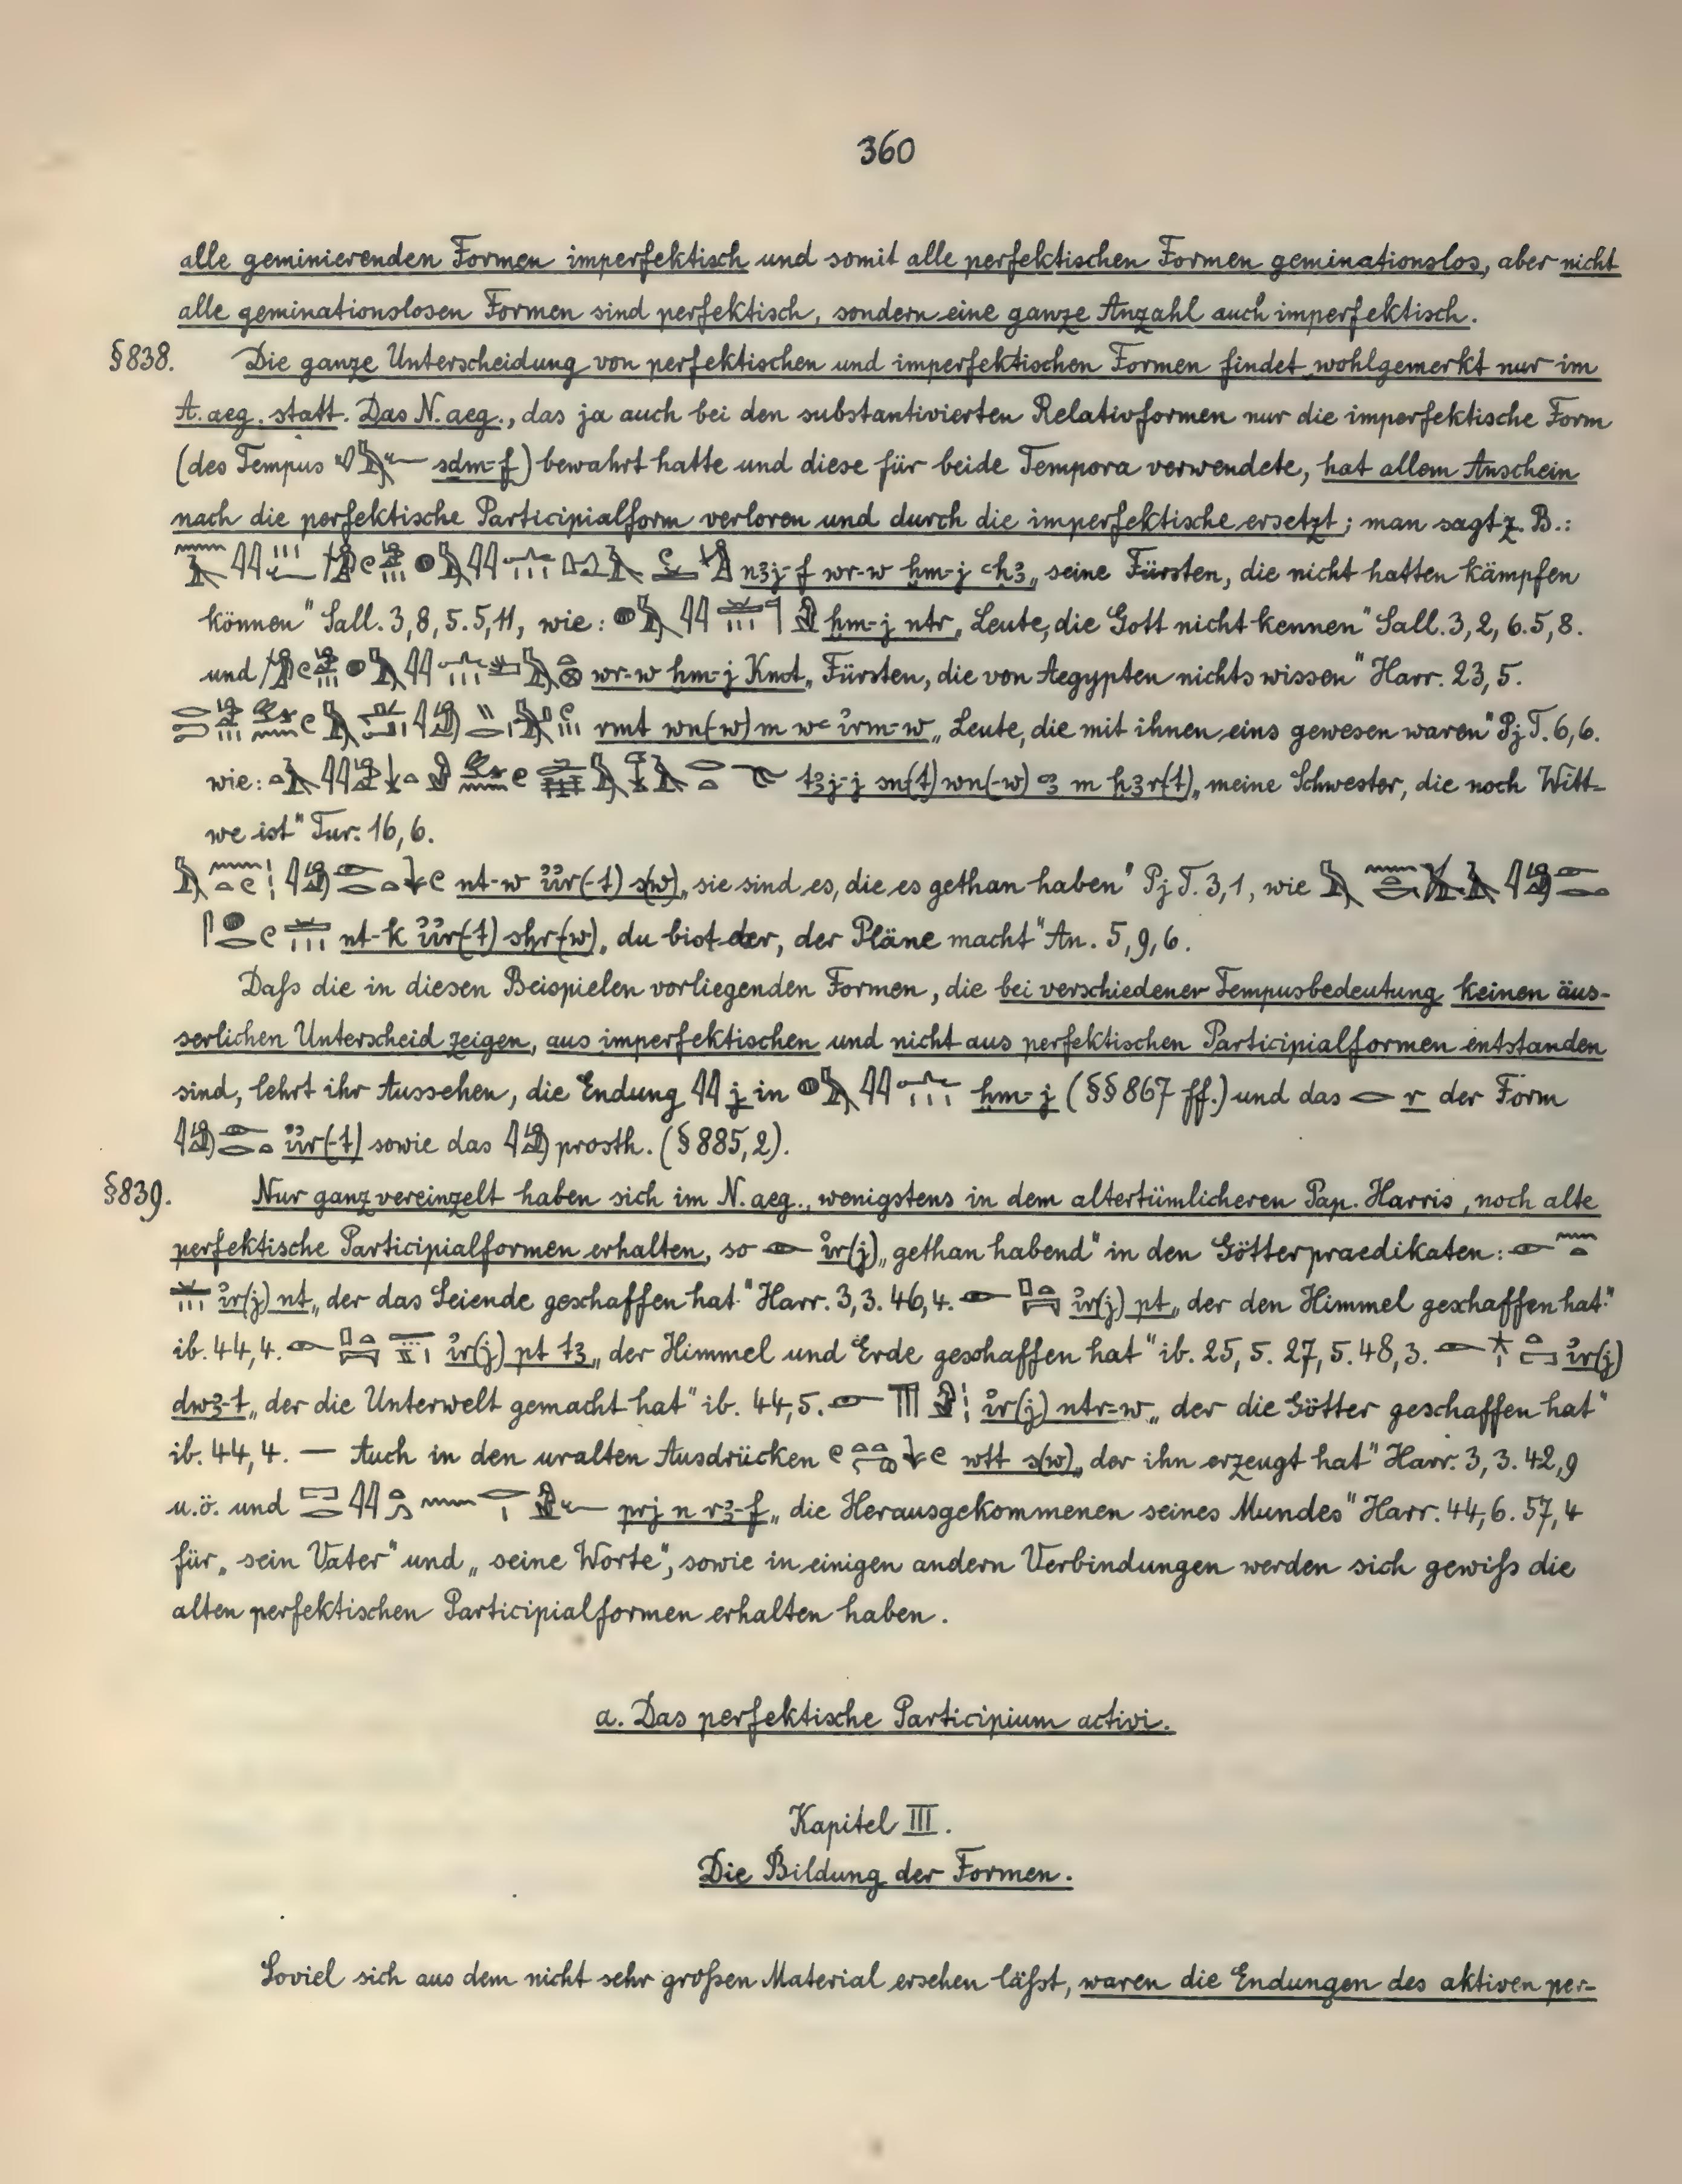 360
alle geminierenden Formen imperfektisch und somit alle perfektischen Formen geminationslos, aber nicht
alle geminationslosen Formen sind perfektisch, sondern eine ganze Anzahl auch imperfektisch.
§838. Die ganze Unterscheidung von perfektischen und imperfektischen Formen findet wohlgemerkt nur im
A.aeg. statt. Das N.aeg., das ja auch bei den substantivierten Relativformen nur die imperfektische Form
(des Tempus sdm-f) bewahrt hatte und diese für beide Tempora verwendete, hat allem Anschein
nach die perfektische Participialform verloren und durch die imperfektische ersetzt; man sagt z.B.:
n3j-f wr-w ḫm-j ꜥḥ3 „seine Fürsten, die nicht hatten kämpfen
können" Sall. 3,8,5. 5,11, wie: ḫm-j ntr „Leute, die Gott nicht kennen" Sall. 3,2,6. 5,8.
und wr-w ḫm-j Kmt „Fürsten, die von Aegypten nichts wissen" Harr. 23,5.
rmt wn(w) m wꜥ irm-w „Leute, die mit ihnen eins gewesen waren" Pj T. 6,6.
wie: t3j-j sn(t) wn(-w) m ḫ3r(t) „meine Schwester, die noch Witt-
we ist" Tur. 16,6.
nt-w ïir(-t) s(w) „sie sind es, die es gethan haben" Pj T. 3,1, wie
nt-k ïir(-t) sḫr(w) „du bist der, der Pläne macht" An. 5,9,6.
Daſs die in diesen Beispielen vorliegenden Formen, die bei verschiedener Tempusbedeutung keinen äus-
serlichen Unterscheid zeigen, aus imperfektischen und nicht aus perfektischen Participialformen entstanden
sind, lehrt ihr Aussehen, die Endung 𓇌 j in ḫm-j (§§867 ff.) und das 𓂋 r der Form
ïir(-t) sowie das prosth. (§885,2).
§839. Nur ganz vereinzelt haben sich im N.aeg., wenigstens in dem altertümlicheren Pap. Harris, noch alte
perfektische Participialformen erhalten, so 𓁹 ir(j) „gethan habend" in den Götterpraedikaten:
ir(j) nt „der das Seiende geschaffen hat" Harr. 3,3. 46,4. ir(j) pt „der den Himmel geschaffen hat"
ib. 44,4. ir(j) pt t3 „der Himmel und Erde geschaffen hat" ib. 25,5. 27,5. 48,3. ir(j)
dw3-t „der die Unterwelt gemacht hat" ib. 44,5. ir(j) ntr-w „der die Götter geschaffen hat"
ib. 44,4. — Auch in den uralten Ausdrücken wtt s(w) „der ihn erzeugt hat" Harr. 3,3. 42,9
u.ö. und prj n r3-f „die Herausgekommenen seines Mundes" Harr. 44,6. 57,4
für „sein Vater" und „seine Worte", sowie in einigen andern Verbindungen werden sich gewiſs die
alten perfektischen Participialformen erhalten haben.
a. Das perfektische Participium activi.
Kapitel III.
Die Bildung der Formen.
Soviel sich aus dem nicht sehr großen Material ersehen läſst, waren die Endungen des aktiven per-